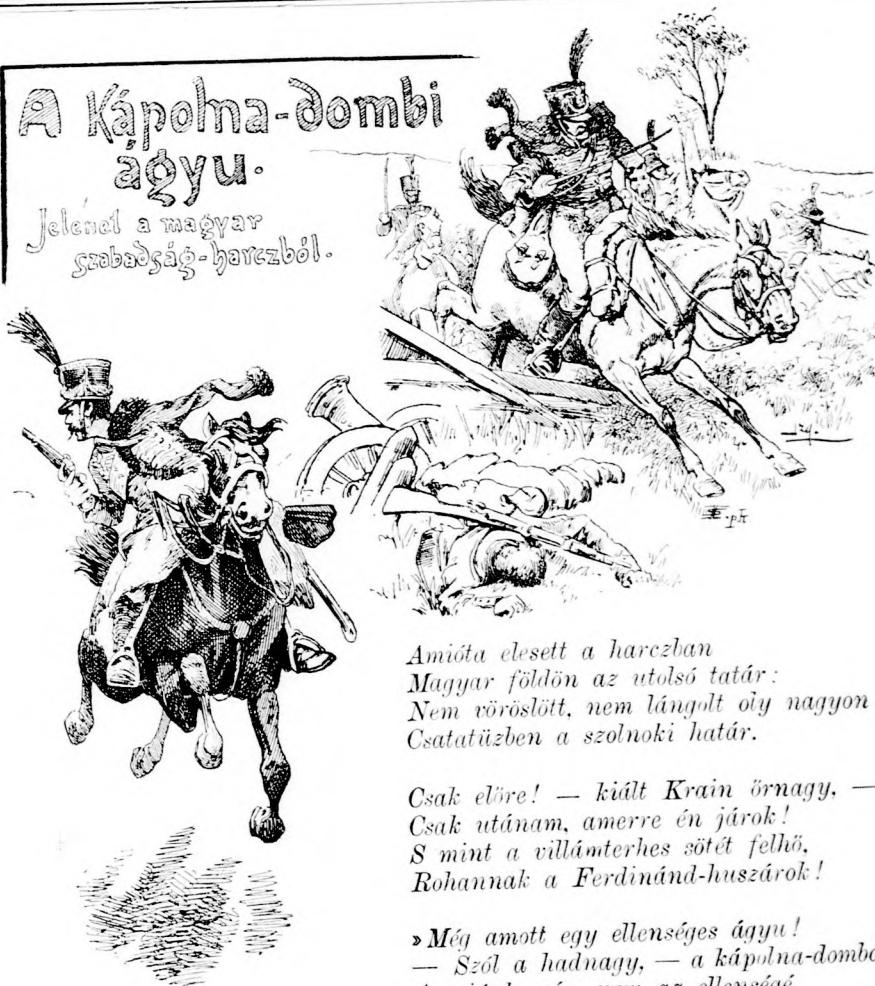 A Kápolna-dombi
ágyu.
Jelenet a magyar
szabadság-harczból.
Amióta elesett a harczban
Magyar földön az utolsó tatár:
Nem vöröslött, nem lángolt oly nagyon
Csatatüzben a szolnoki határ.
Csak előre! — kiált Krain őrnagy, —
Csak utánam, amerre én járok!
S mint a villámterhes sötét felhő,
Rohannak a Ferdinánd-huszárok!
»Még amott egy ellenséges ágyu!
— Szól a hadnagy, — a